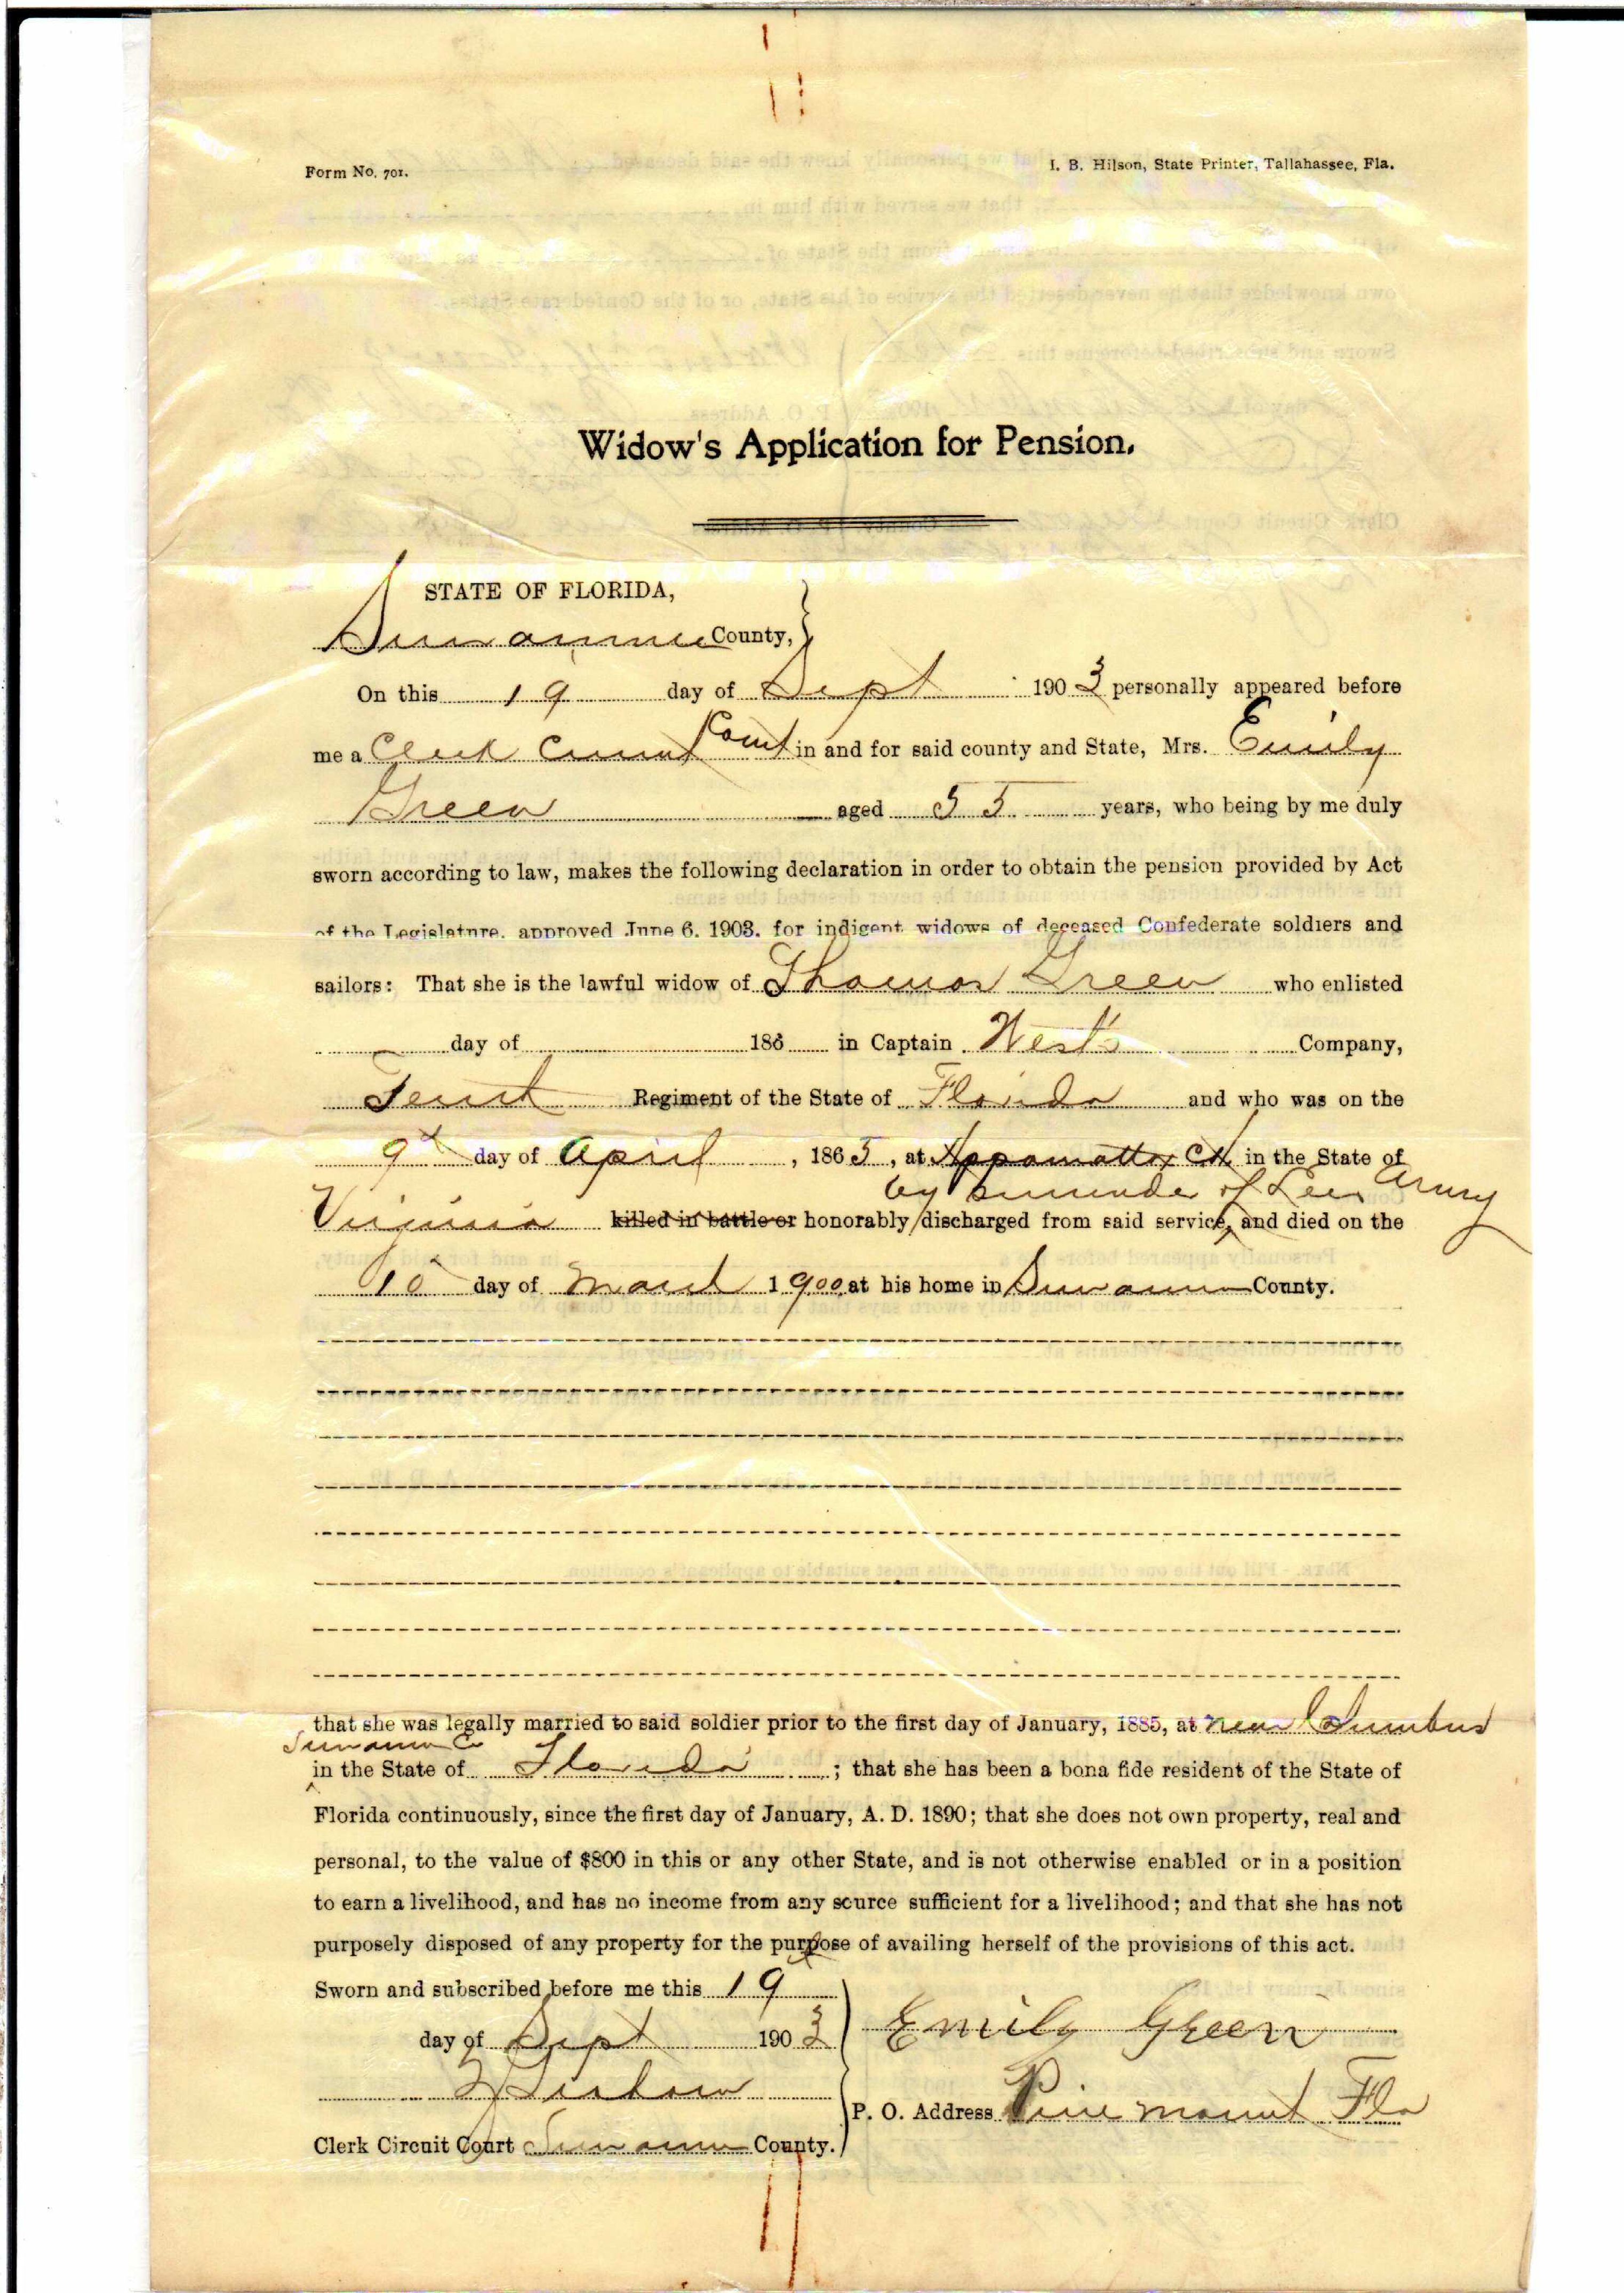 Form No. 701.
I. B. Hilson, State Printer, Tallahassee, Fla.
Widow's Application for Pension.
STATE OF FLORIDA,
Suwannee County,
On this 19 day of Sept 1903 personally appeared before
me a Clerk Circuit Court in and for said county and State, Mrs. Emily
Green aged 55 years, who being by me duly
sworn according to law, makes the following declaration in order to obtain the pension provided by Act
of the Legislature, approved June 6, 1903, for indigent widows of deceased Confederate soldiers and
sailors: That she is the lawful widow of Thomas Green who enlisted
day of 186 in Captain West's Company,
Tenth Regiment of the State of Florida and who was on the
9th day of April, 1865, at Appomattox CH in the State of
by surrender of Lees Army
Virginia killed in battle or honorably discharged from said service, and died on the
10 day of March 1900 at his home in Suwannee County.
that she was legally married to said soldier prior to the first day of January, 1885, at near Columbus
Suwannee Co
in the State of Florida; that she has been a bona fide resident of the State of
Florida continuously, since the first day of January, A. D. 1890; that she does not own property, real and
personal, to the value of $800 in this or any other State, and is not otherwise enabled or in a position
to earn a livelihood, and has no income from any source sufficient for a livelihood; and that she has not
purposely disposed of any property for the purpose of availing herself of the provisions of this act.
Sworn and subscribed before me this 19
day of Sept 1903
Emily Green
P. O. Address Pine mount Fla
Clerk Circuit Court Suwannee County.